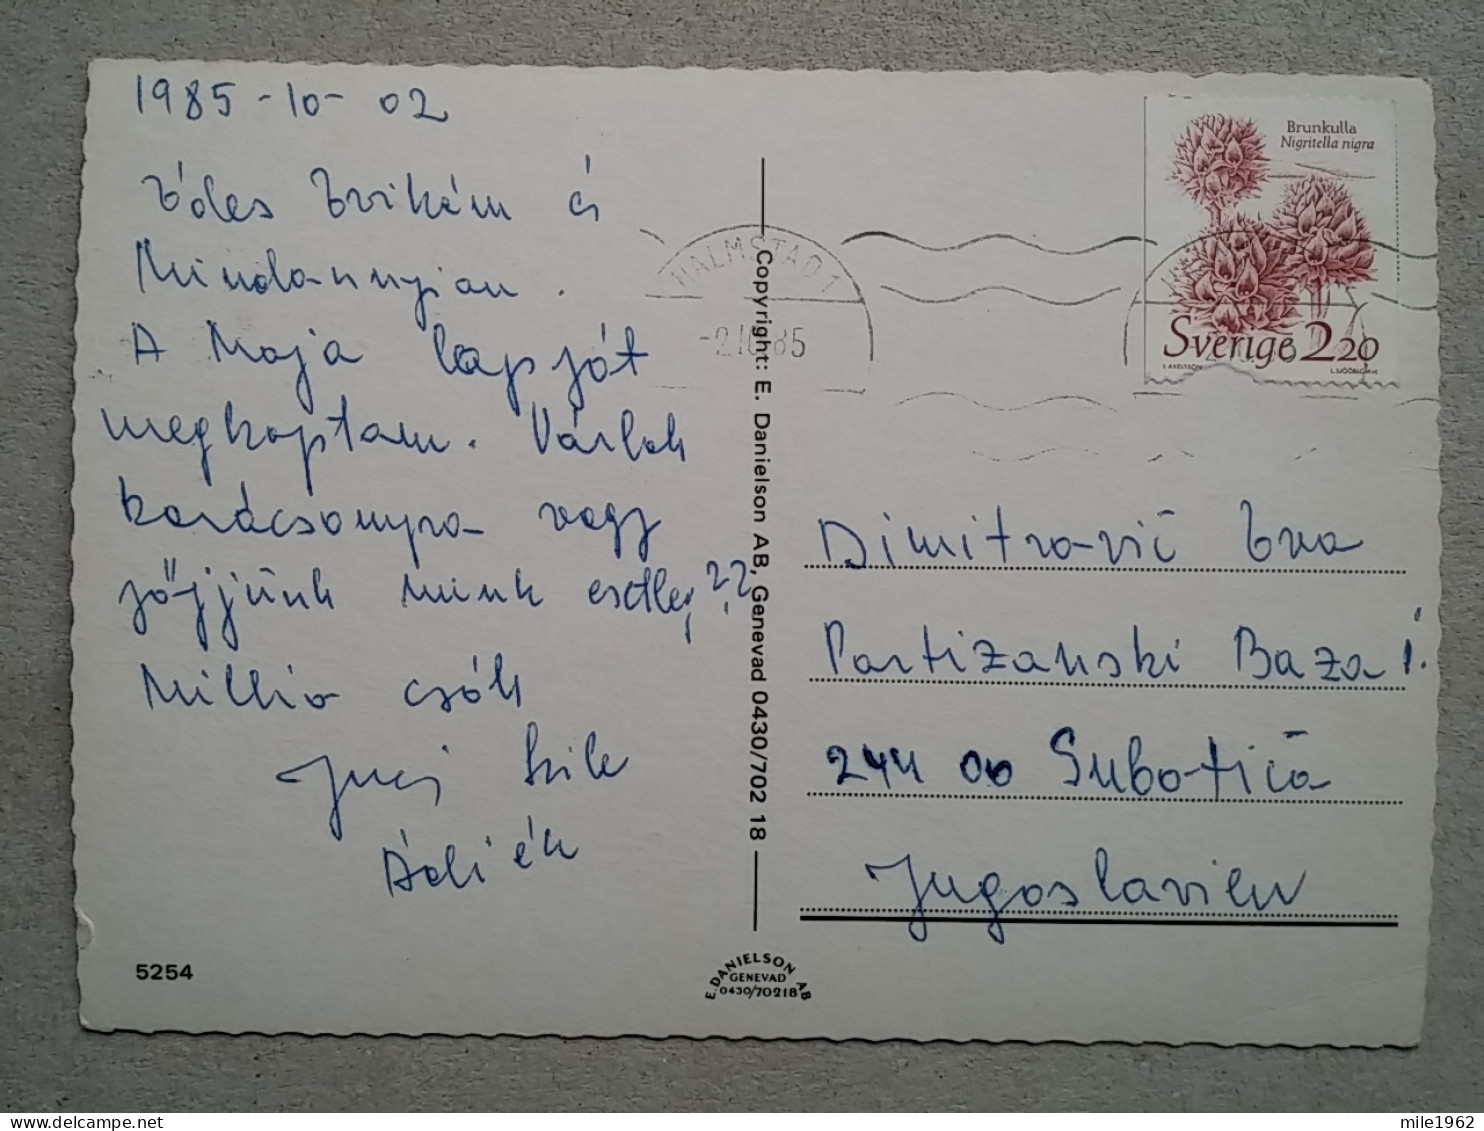 1985-10-02
Édes Évikém és
Mindannyian.
A Maja lapját
megkaptam. Várlak
karácsonyra vagy
jöjjünk mink esetleg??
Millió csók
Juci
Ádi ék
5254
Copyright: E. Danielson AB, Genevad 0430/702 18
E. DANIELSON AB
GENEVAD
0430/70218
HALMSTAD 1
-2.10.85
Brunkulla
Nigritella nigra
Sverige 2.20
Dimitrović Eva
Partizanski Baza 1.
244 00 Subotica
Jugoslavien
mile1962